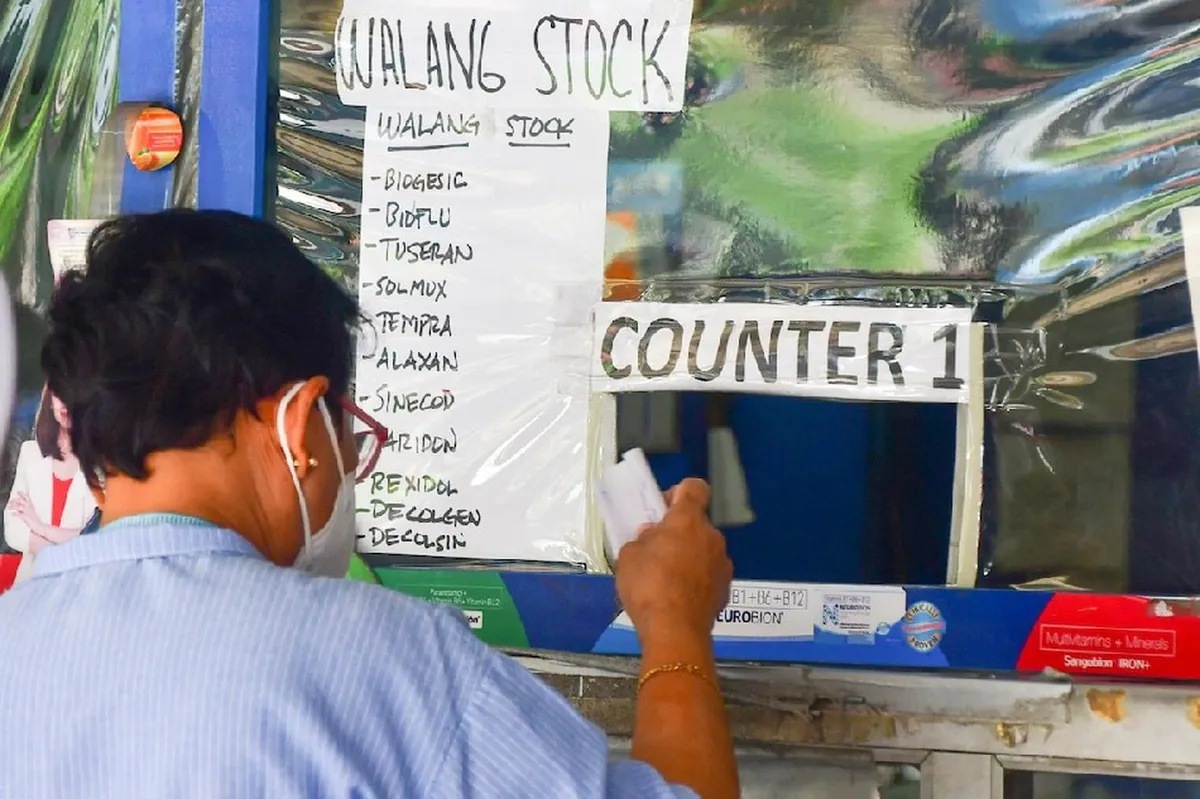 WALANG STOCK
WALANG STOCK
-BIOGESIC
-BIOFLU
-TUSERAN
-SOLMUX
TEMPRA
ALAXAN
-SINECOD
ARIDON
-REXIDOL
-DECOLGEN
-DECOLSIN
COUNTER 1
B1+B6+B12
EUROBION
CLINICALLY
PROVEN
Multivitamins + Minerals
Sangobion IRON+